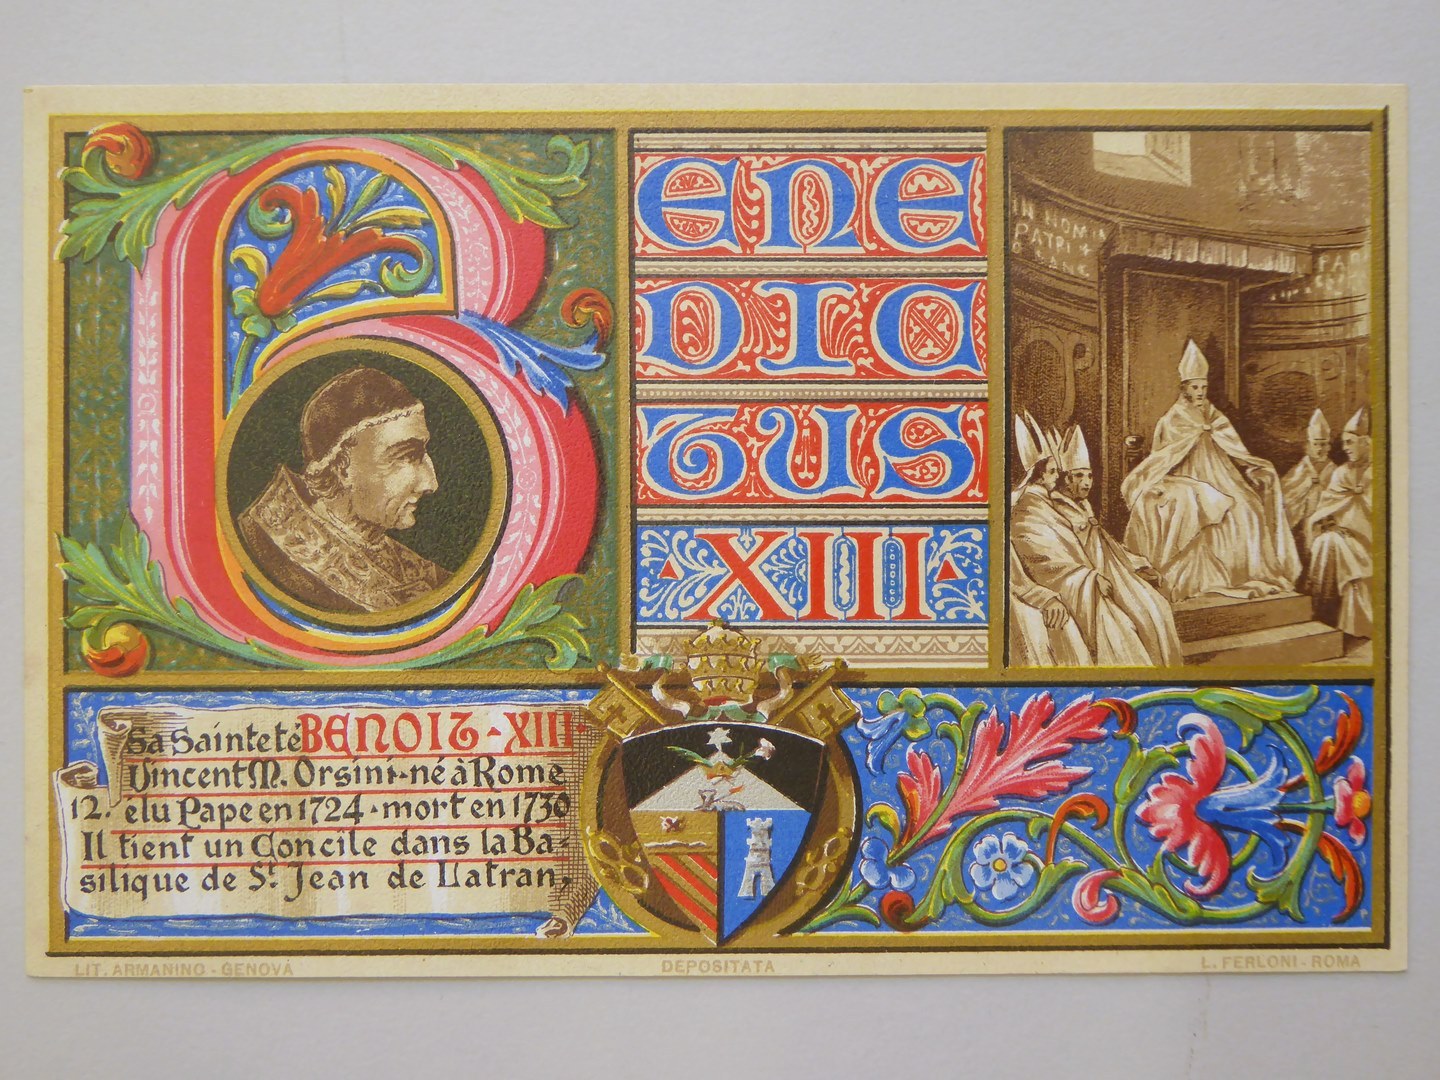 BENE
DIC
TUS
·XIII·
IN NOM
PATRI +
SANC
PA
Sa Sainteté BENOIT-XIII·
Vincent M. Orsini·né à Rome
12. elu Pape en 1724·mort en 1730
Il tient un Concile dans la Ba-
silique de St. Jean de Latran,
LIT. ARMANINO - GENOVA
DEPOSITATA
L. FERLONI - ROMA